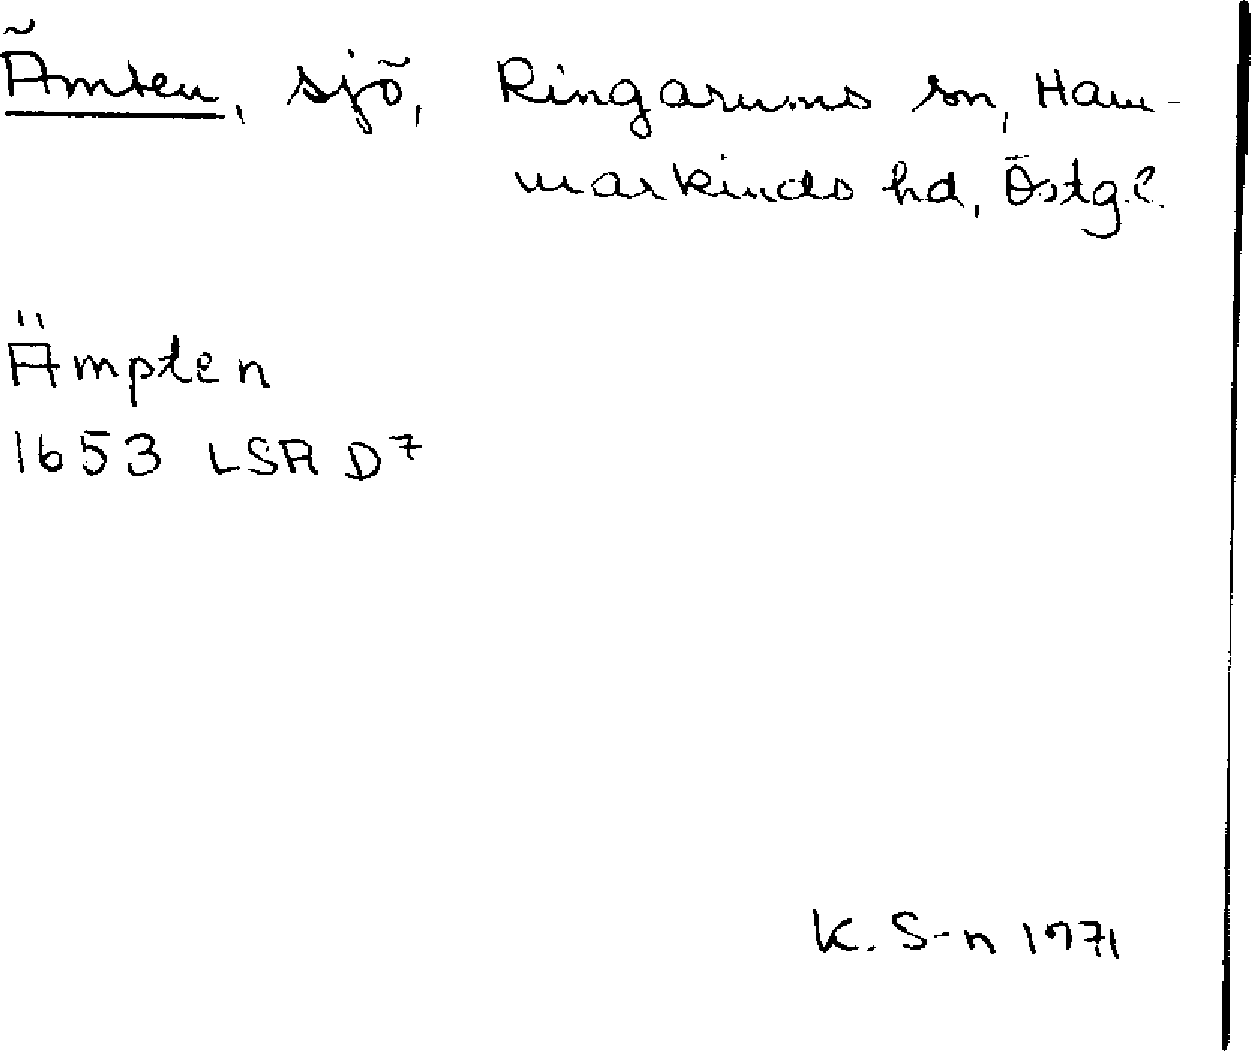 Ämten, sjö, Ringarums sn, Ham-
markinds hd, Östg.l.
Ämpten
1653 LSA D7
K. S-n 1971